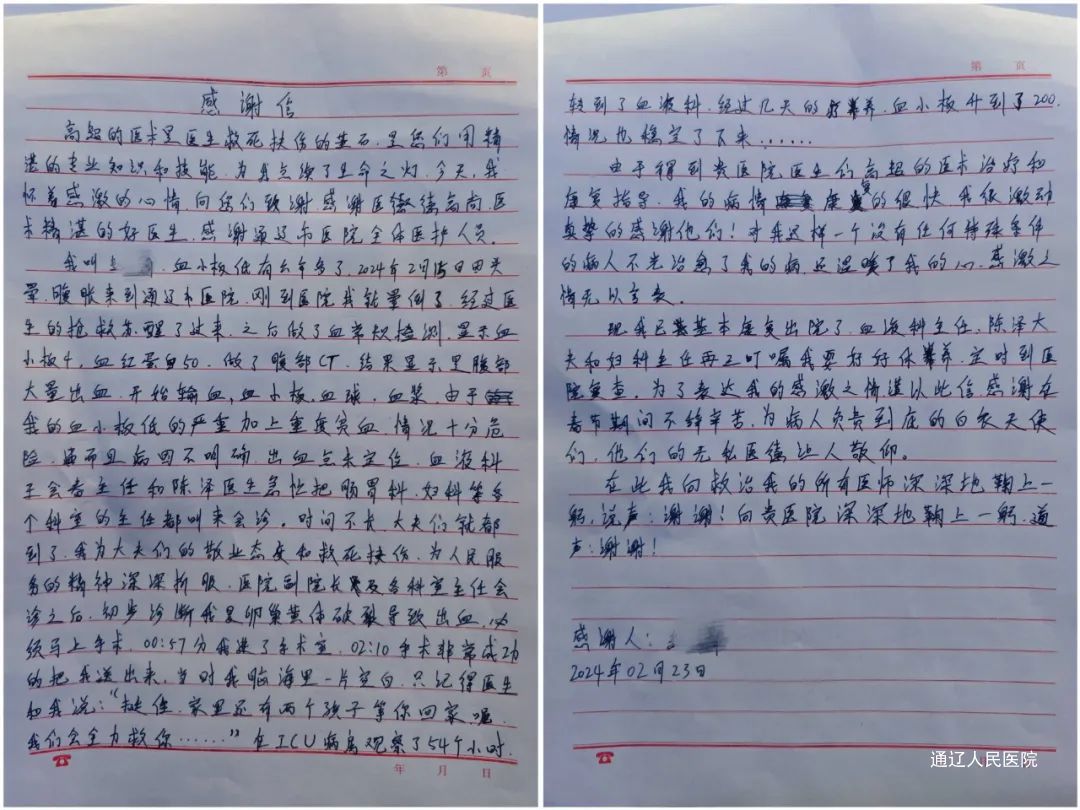 第 页
感谢信
高超的医术是医生救死扶伤的基石,是您们用精
湛的专业知识和技能,为我点续了生命之灯,今天,我
怀着感激的心情,向您们致谢感谢医德高尚,医
术精湛的好医生,感谢通辽市医院全体医护人员。
我叫 ,血小板低有六年多了,2024年2月15日因头
晕,腹胀来到通辽市医院,刚到医院我就晕倒了,经过医
生的抢救苏醒了过来,之后做了血常规检测,显示血
小板4,血红蛋白50,做了腹部CT,结果显示是腹部
大量出血,开始输血,血小板,血球,血浆,由于
我的血小板低的严重加上重度贫血,情况十分危
险,而且病因不明确,出血点未定位,血液科
于会春主任和陈泽医生急忙把肠胃科,妇科等多
个科室的主任都叫来会诊。时间不长,大夫们就都
到了,我为大夫们的敬业态度和救死扶伤,为人民服
务的精神深深折服,医院副院长及各科室主任会
诊之后,初步诊断我是卵巢黄体破裂导致出血,必
须马上手术,00:57分我进了手术室,02:10手术非常成功
的把我送出来,当时我脑海里一片空白,只记得医生
和我说:“挺住,家里还有两个孩子等你回家呢,
我们会全力救你……”在ICU病房观察了54个小时,
年 月 日
第 页
转到了血液科,经过几天的疗养,血小板升到了200,
情况也稳定了下来……
由于得到贵医院医生们高超的医术治疗和
康复指导,我的病情康复的很快,我很激动
真挚的感谢他们!对我这样一个没有任何特殊条件
的病人不光治愈了我的病,还温暖了我的心,感激之
情无以言表。
现我已基本康复出院了,血液科主任,陈泽大
夫和妇科主任再三叮嘱我要好好休养,定时到医
院复查,为了表达我的感激之情谨以此信感谢在
春节期间不辞辛苦,为病人负责到底的白衣天使
们,他们的无私医德让人敬仰。
在此我向救治我的所有医师深深地鞠上一
躬,说声:谢谢!向贵医院深深地鞠上一躬,道
声:谢谢!
感谢人:
2024年02月23日
通辽人民医院